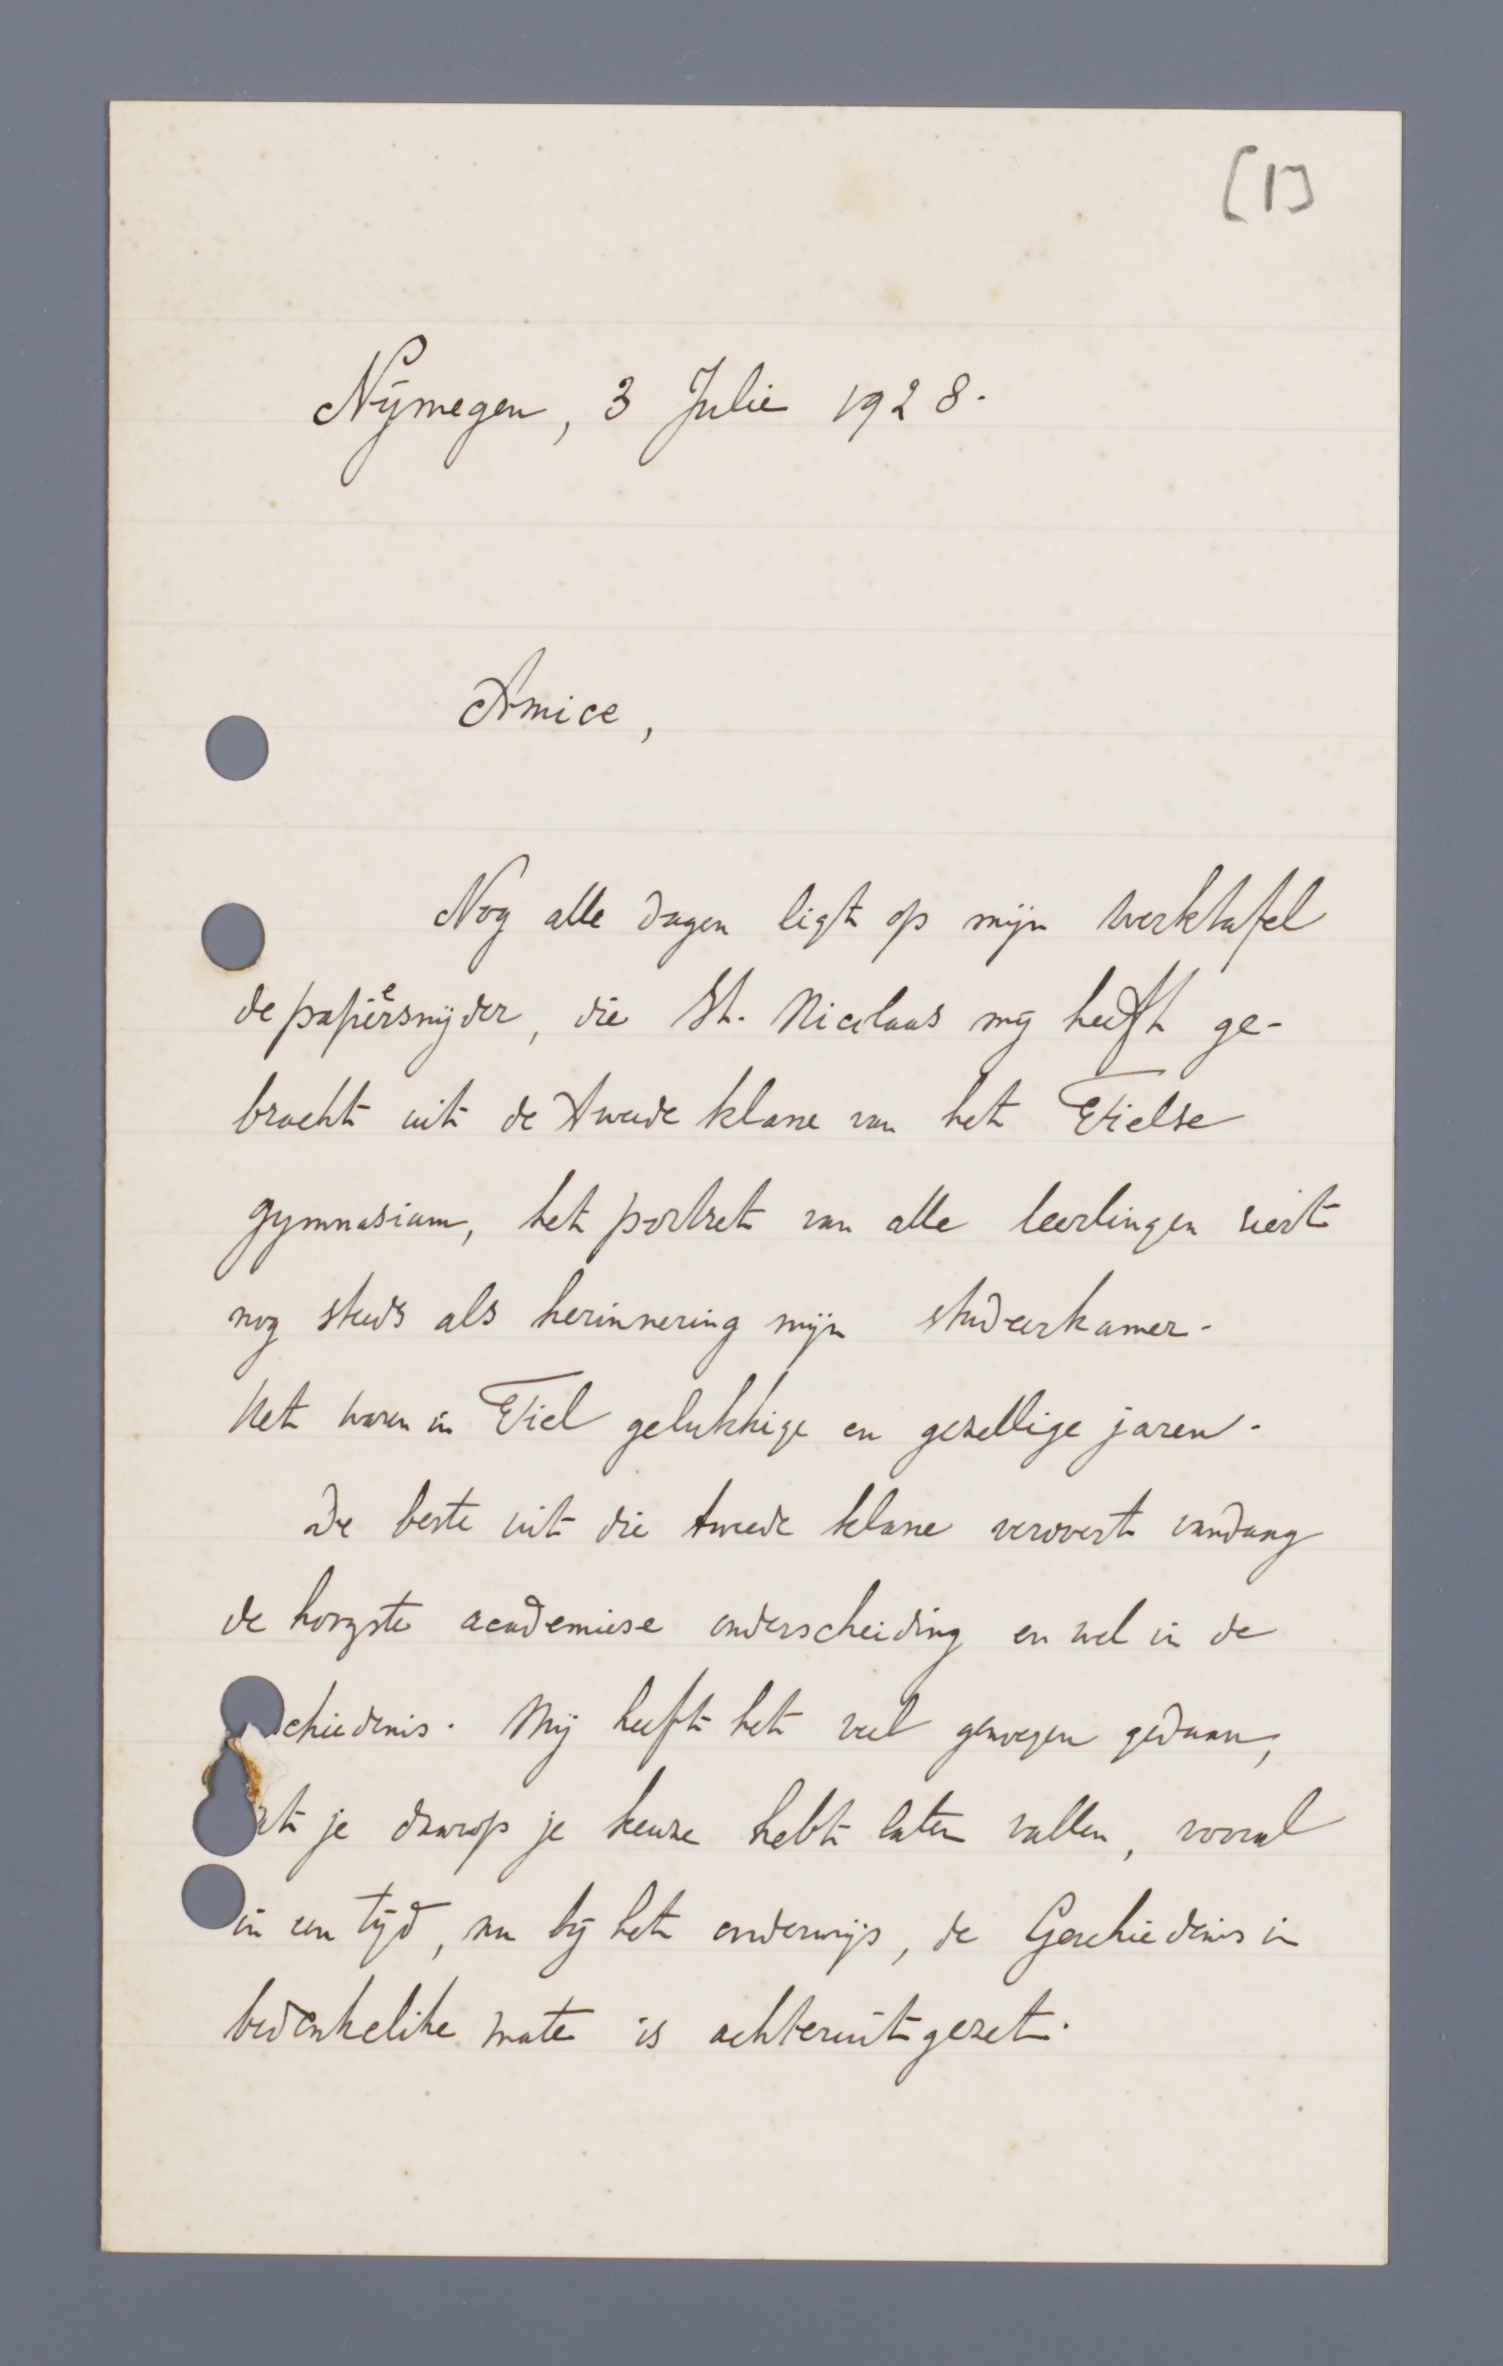 [1]
Nijmegen, 3 Julie 1928.
Amice,
Nog alle dagen ligt op mijn werktafel
de papiersnijder, die St. Nicolaas mij heeft ge-
bracht uit de tweede klasse van het Tielse
gymnasium, het portret van alle leerlingen siert
nog steeds als herinnering mijn studeerkamer.
Het waren in Tiel gelukkige en gezellige jaren.
De beste uit die tweede klasse verovert vandaag
de hoogste academiese onderscheiding en wel in de
chiedenis. Mij heeft het veel genoegen gedaan,
at je daarop je keuze hebt laten vallen, vooral
in een tijd, nu bij het onderwijs, de Geschiedenis in
bedenkelike mate is achteruitgezet.